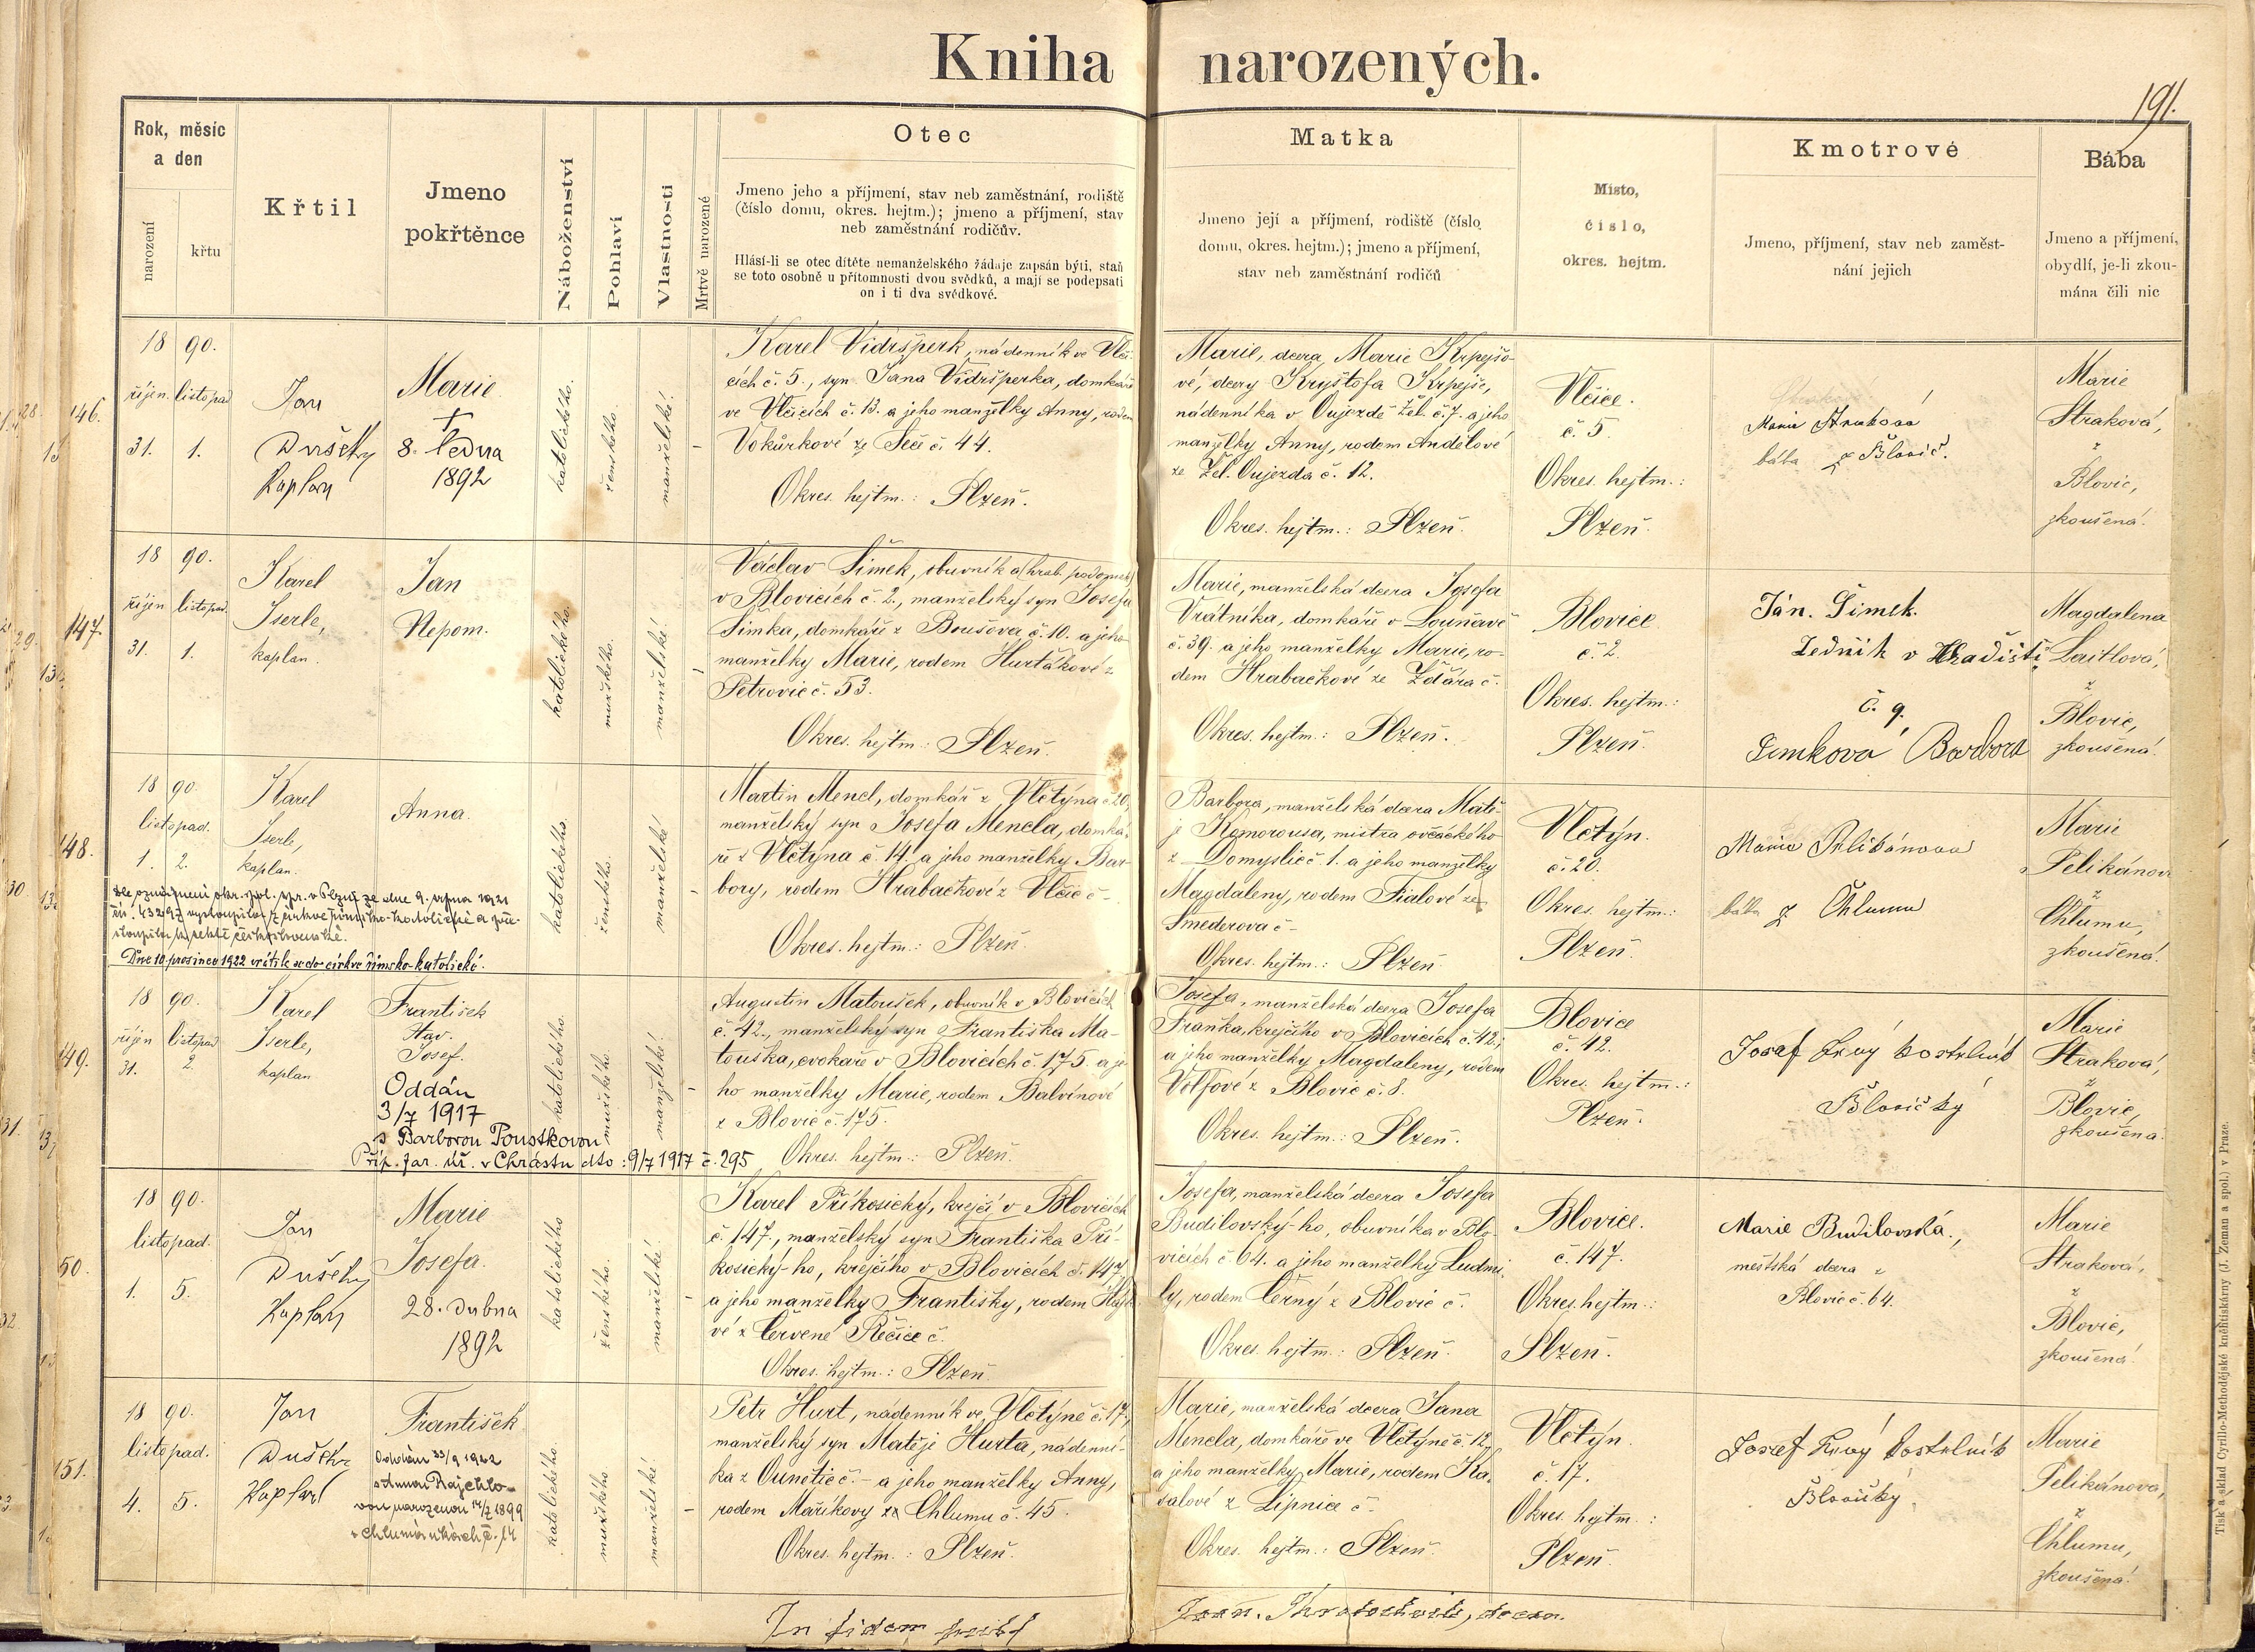 Kniha narozených.
191.
Rok, měsíc
a den
narození
křtu
Křtil
Jmeno
pokřtěnce
Náboženství
Pohlaví
Vlastnosti
Mrtvě narozené
Otec
Jmeno jeho a příjmení, stav neb zaměstnání, rodiště
(číslo domu, okres. hejtm.); jmeno a příjmení, stav
neb zaměstnání rodičův.
Hlásí-li se otec dítěte nemanželského žádaje zapsán býti, staň
se toto osobně u přítomnosti dvou svědků, a mají se podepsati
on i ti dva svědkové.
Matka
Jmeno její a příjmení, rodiště (číslo
domu, okres. hejtm.); jmeno a příjmení,
stav neb zaměstnání rodičů
Místo,
číslo,
okres. hejtm.
Kmotrové
Jmeno, příjmení, stav neb zaměst-
nání jejich
Bába
Jmeno a příjmení,
obydlí, je-li zkou-
mána čili nic
146.
18 90.
říjen listopad
31. 1.
Jan
Dušek
Kaplan
Marie
†
8. ledna
1892
katolického.
ženského.
manželské.
Karel Vidršperk, nádenník ve Vlči-
cích č. 5., syn Jana Vidršperka, domkáře
ve Vlčicích č. 13. a jeho manželky Anny, rodem
Vokurkové ze Seči č. 44.
Okres. hejtm.: Plzeň.
Marie, dcera Marie Krpejšo-
vé, dcery Kryštofa Krpejše,
nádenníka v Oujezdě Žel. č. 7. a jeho
manželky Anny, rodem Andělové
ze Žel. Oujezda č. 12.
Okres. hejtm.: Plzeň.
Vlčice.
č. 5.
Okres. hejtm.:
Plzeň.
Marie Straková
bába z Blovic.
Marie
Straková,
z
Blovic,
zkoušená.
147.
18 90.
říjen listopad.
31. 1.
Karel
Iserle,
kaplan.
Jan
Nepom.
katolického.
mužského.
manželské.
Václav Šimek, obuvník a
v Blovicích č. 2., manželský syn Josefa
Šimka, domkáře z Boušova č. 10. a jeho
manželky Marie, rodem Hurtákové z
Petrovic č. 53.
Okres. hejtm.: Plzeň.
Marie, manželská dcera Josefa
Vrátníka, domkáře v Louňavě
č. 39. a jeho manželky Marie, ro-
dem Hrabačkové ze Žďára č.
Okres. hejtm.: Plzeň.
Blovice
č. 2.
Okres. hejtm.:
Plzeň.
Ján. Šimek.
Zedník v Hradišti
č. 9.
Šimková Barbora
Magdalena
Laitlová,
z
Blovic,
zkoušená.
148.
18 90.
listopad.
1. 2.
Karel
Iserle,
kaplan.
Anna.
Dne 10. prosince 1922 vrátila se do církve římsko-katolické.
katolického.
ženského.
manželské
Martin Mencl, domkář z Vlčtýna č. 20,
manželský syn Josefa Mencla, domká-
ře z Vlčtýna č. 14. a jeho manželky Bar-
bory, rodem Hrabačkové z Vlčic č. -
Okres. hejtm.: Plzeň.
Barbora, manželská dcera Matě-
je Komorousa, mistra ovčáckého
z Domyslic č. 1. a jeho manželky
Magdaleny, rodem Fialové ze
Smederova č -
Okres. hejtm.: Plzeň.
Vlčtýn.
č. 20.
Okres. hejtm.:
Plzeň.
Marie Pelikánova
bába z Chlumu
Marie
Pelikánov
z
Chlumu,
zkoušená.
149.
18 90.
říjen listopad
31. 2.
Karel
Iserle,
kaplan
František
Josef.
Oddán
3/7 1917
s Barborou Poustkovou
Příp. far. úř. v Chrástu dto: 9/7 1917 č. 295
katolického.
mužského.
manželské.
Augustin Matoušek, obuvník v Blovicích
č. 42., manželský syn Františka Ma-
touška, cvokaře v Blovicích č. 175. a je-
ho manželky Marie, rodem Balvínové
z Blovic č. 175.
Okres. hejtm.: Plzeň.
Josefa, manželská dcera Josefa
Fraňka, krejčího v Blovicích č. 42.,
a jeho manželky Magdaleny, rodem
Volfové z Blovic č. 8.
Okres. hejtm.: Plzeň.
Blovice
č. 42.
Okres. hejtm.:
Plzeň.
Josef Levý kostelník
Blovický
Marie
Straková,
z
Blovic,
zkoušená.
50.
18 90.
listopad.
1. 5.
Jan
Dušek
Kaplan
Marie
Josefa.
28. dubna
1892
katolického
ženského.
manželské.
Karel Příkosický, krejčí v Blovicích
č. 147., manželský syn Františka Pří-
kosický-ho, krejčího v Blovicích č. 147
a jeho manželky Františky, rodem Hájko-
vé z Červené Řečice č.
Okres. hejtm.: Plzeň.
Josefa, manželská dcera Josefa
Budilovský-ho, obuvníka v Blo-
vicích č. 64. a jeho manželky Ludmi-
ly, rodem Černý z Blovic č.
Okres. hejtm.: Plzeň.
Blovice.
č. 147.
Okres. hejtm.:
Plzeň.
Marie Budilovská,
městská dcera z
Blovic č. 64.
Marie
Straková,
z
Blovic,
zkoušená.
151.
18 90.
listopad.
4. 5.
Jan
Dušek
Kaplan
František
katolického.
mužského
manželské
Petr Hurt, nádenník ve Vlčtýně č. 17,
manželský syn Matěje Hurta, nádenní-
ka z Ounětic č. - a jeho manželky Anny,
rodem Maříkovy ze Chlumu č. 45.
Okres. hejtm.: Plzeň.
Marie, manželská dcera Jana
Mencla, domkáře ve Vlčtýně č. 12,
a jeho manželky Marie, rodem Ka-
salové z Lipnice č.
Okres. hejtm.: Plzeň.
Vlčtýn.
č. 17.
Okres. hejtm.:
Plzeň.
Josef Levý kostelník
Blovický.
Marie
Pelikánova,
z
Chlumu,
zkoušená.
In fidem
Tisk a sklad Cyrillo-Methodějské kněhtiskárny (J. Zeman a spol.) v Praze.